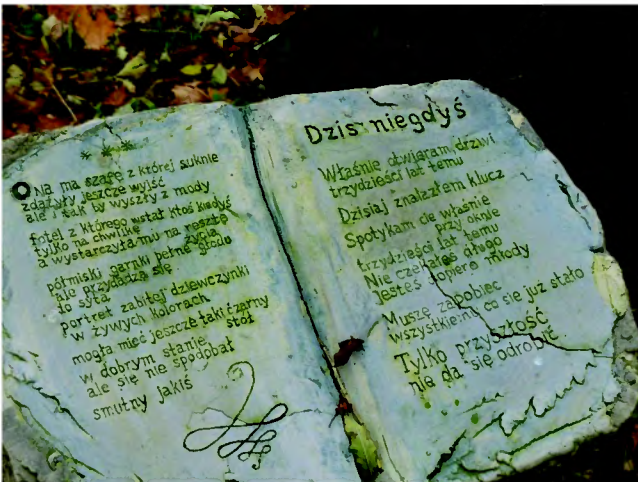 * * *
Ona ma szafę z której suknie
zdążyły jeszcze wyjść
ale i tak by wyszły z mody
fotel z którego wstał ktoś kiedyś
tylko na chwilkę
a wystarczyła mu na resztę
życia
półmiski garnki pełne głodu
ale przydadzą się
do syta
portret zabitej dziewczynki
w żywych kolorach
mogła mieć jeszcze taki czarny
stół
w dobrym stanie
ale się nie spodobał
smutny jakiś
Dziś-niegdyś
Właśnie otwieram drzwi
trzydzieści lat temu
Dzisiaj znalazłem klucz
Spotykam cię właśnie
przy oknie
trzydzieści lat temu
Nie czekałeś długo
jesteś dopiero młody
Muszę zapobiec
wszystkiemu co się już stało
Tylko przyszłość
nie da się odrobić